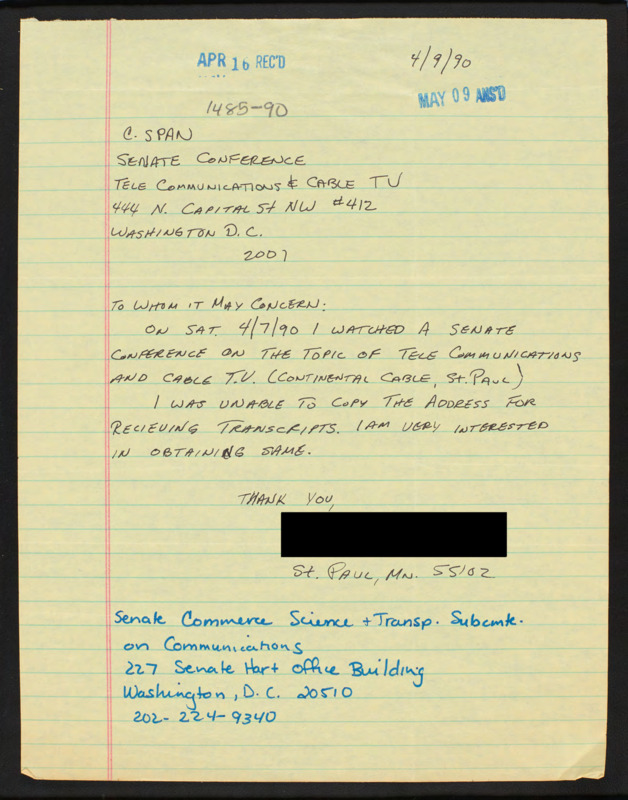 APR 16 REC'D
4/9/90
MAY 09 ANS'D
1485-90
C. SPAN
SENATE CONFERENCE
TELE COMMUNICATIONS & CABLE TV
444 N. CAPITAL St NW #412
WASHINGTON D.C.
2001
TO WHOM IT MAY CONCERN:
ON SAT. 4/7/90 I WATCHED A SENATE
CONFERENCE ON THE TOPIC OF TELE COMMUNICATIONS
AND CABLE T.V. (CONTINENTAL CABLE, St. PAUL)
I WAS UNABLE TO COPY THE ADDRESS FOR
RECIEVING TRANSCRIPTS. I AM VERY INTERESTED
IN OBTAINING SAME.
THANK YOU,
St. PAUL, MN. 55102
Senate Commerce Science + Transp. Subcmte.
on Communications
227 Senate Hart Office Building
Washington, D.C. 20510
202-224-9340